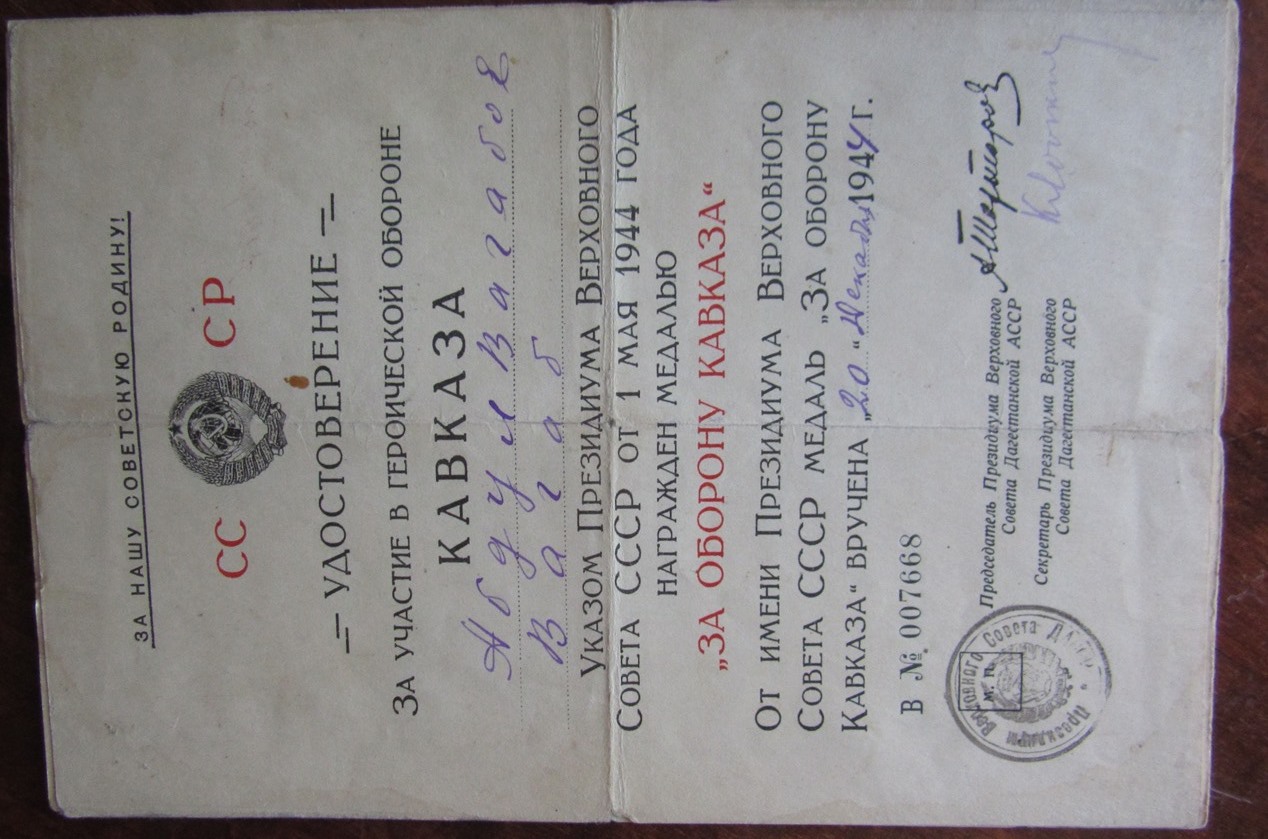 ЗА НАШУ СОВЕТСКУЮ РОДИНУ!
СС СР
— УДОСТОВЕРЕНИЕ —
ЗА УЧАСТИЕ В ГЕРОИЧЕСКОЙ ОБОРОНЕ
КАВКАЗА
Абдул Вагабов
Вагаб
УКАЗОМ ПРЕЗИДИУМА ВЕРХОВНОГО
СОВЕТА СССР ОТ 1 МАЯ 1944 ГОДА
НАГРАЖДЕН МЕДАЛЬЮ
„ЗА ОБОРОНУ КАВКАЗА“
ОТ ИМЕНИ ПРЕЗИДИУМА ВЕРХОВНОГО
СОВЕТА СССР МЕДАЛЬ „ЗА ОБОРОНУ
КАВКАЗА“ ВРУЧЕНА „20“ Декабря 1944 Г.
В №. 007668
Председатель Президиума Верховного
Совета Дагестанской АССР
Секретарь Президиума Верховного
Совета Дагестанской АССР
Президиум Верховного Совета ДАССР
М. П.